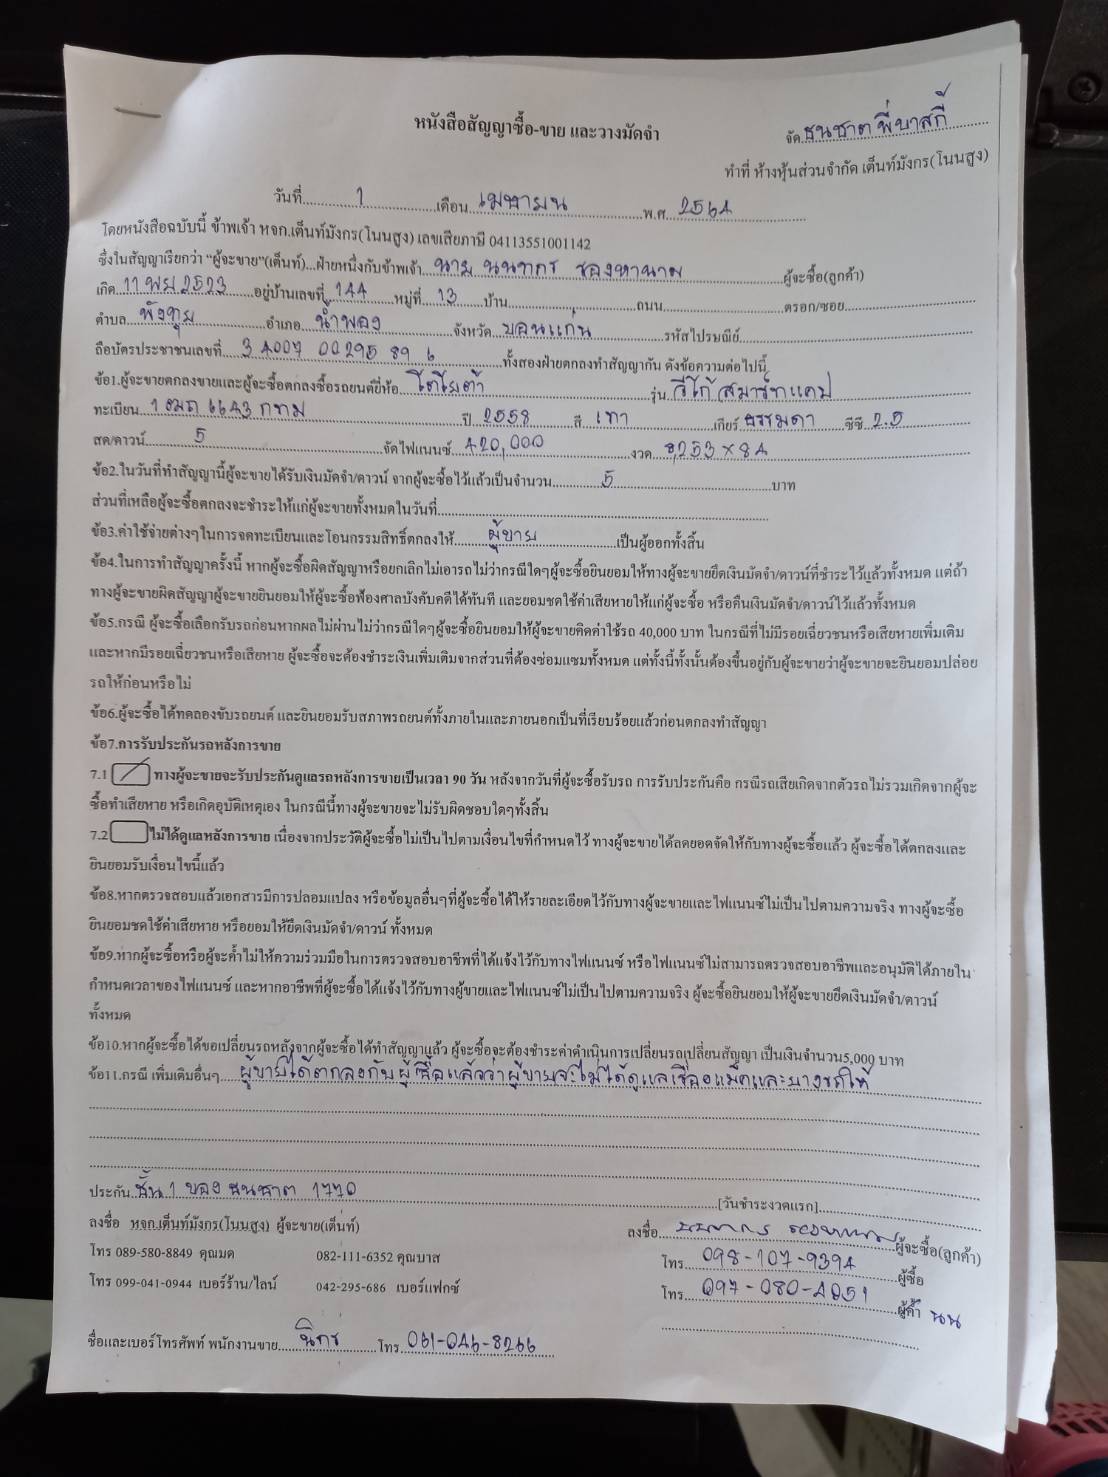 หนังสือสัญญาซื้อ-ขาย และวางมัดจำ
จัด ธนชาต พี่บาสกี้
ทำที่ ห้างหุ้นส่วนจำกัด เต็นท์มังกร(โนนสูง)
วันที่ 1 เดือน เมษายน พ.ศ. 2564
โดยหนังสือฉบับนี้ ข้าพเจ้า หจก.เต็นท์มังกร(โนนสูง) เลขเสียภาษี 04113551001142
ซึ่งในสัญญาเรียกว่า "ผู้จะขาย"(เต็นท์)...ฝ่ายหนึ่งกับข้าพเจ้า นาย นนทกร ผู้จะซื้อ(ลูกค้า)
เกิด 11 พย 2523 อยู่บ้านเลขที่ 144 หมู่ที่ 13 บ้าน ถนน ตรอก/ซอย
ตำบล พังทุย อำเภอ น้ำพอง จังหวัด ขอนแก่น รหัสไปรษณีย์
ถือบัตรประชาชนเลขที่ 3 4007 00295 89 6 ทั้งสองฝ่ายตกลงทำสัญญากัน ดังข้อความต่อไปนี้
ข้อ1.ผู้จะขายตกลงขายและผู้จะซื้อตกลงซื้อรถยนต์ยี่ห้อ โตโยต้า รุ่น วีโก้ สมาร์ทแคป
ทะเบียน 1 ฒถ 6643 กทม ปี 2558 สี เทา เกียร์ ธรรมดา ซีซี 2.5
สด/ดาวน์ 5 จัดไฟแนนซ์ 420,000 งวด 8,253 × 84
ข้อ2.ในวันที่ทำสัญญานี้ผู้จะขายได้รับเงินมัดจำ/ดาวน์ จากผู้จะซื้อไว้แล้วเป็นจำนวน 5 บาท
ส่วนที่เหลือผู้จะซื้อตกลงจะชำระให้แก่ผู้จะขายทั้งหมดในวันที่
ข้อ3.ค่าใช้จ่ายต่างๆในการจดทะเบียนและโอนกรรมสิทธิ์ตกลงให้ ผู้ขาย เป็นผู้ออกทั้งสิ้น
ข้อ4.ในการทำสัญญาครั้งนี้ หากผู้จะซื้อผิดสัญญาหรือยกเลิกไม่เอารถไม่ว่ากรณีใดๆผู้จะซื้อยินยอมให้ทางผู้จะขายยึดเงินมัดจำ/ดาวน์ที่ชำระไว้แล้วทั้งหมด แต่ถ้า
ทางผู้จะขายผิดสัญญาผู้จะขายยินยอมให้ผู้จะซื้อฟ้องศาลบังคับคดีได้ทันที และยอมชดใช้ค่าเสียหายให้แก่ผู้จะซื้อ หรือคืนเงินมัดจำ/ดาวน์ไว้แล้วทั้งหมด
ข้อ5.กรณี ผู้จะซื้อเลือกรับรถก่อนหากผลไม่ผ่านไม่ว่ากรณีใดๆผู้จะซื้อยินยอมให้ผู้จะขายคิดค่าใช้รถ 40,000 บาท ในกรณีที่ไม่มีรอยเฉี่ยวชนหรือเสียหายเพิ่มเติม
และหากมีรอยเฉี่ยวชนหรือเสียหาย ผู้จะซื้อจะต้องชำระเงินเพิ่มเติมจากส่วนที่ต้องซ่อมแซมทั้งหมด แต่ทั้งนี้ทั้งนั้นต้องขึ้นอยู่กับผู้จะขายว่าผู้จะขายจะยินยอมปล่อย
รถให้ก่อนหรือไม่
ข้อ6.ผู้จะซื้อได้ทดลองขับรถยนต์ และยินยอมรับสภาพรถยนต์ทั้งภายในและภายนอกเป็นที่เรียบร้อยแล้วก่อนตกลงทำสัญญา
ข้อ7.การรับประกันรถหลังการขาย
7.1 ทางผู้จะขายจะรับประกันดูแลรถหลังการขายเป็นเวลา 90 วัน หลังจากวันที่ผู้จะซื้อรับรถ การรับประกันคือ กรณีรถเสียเกิดจากตัวรถไม่รวมเกิดจากผู้จะ
ซื้อทำเสียหาย หรือเกิดอุบัติเหตุเอง ในกรณีนี้ทางผู้จะขายจะไม่รับผิดชอบใดๆทั้งสิ้น
7.2 ไม่ได้ดูแลหลังการขาย เนื่องจากประวัติผู้จะซื้อไม่เป็นไปตามเงื่อนไขที่กำหนดไว้ ทางผู้จะขายได้ลดยอดจัดให้กับทางผู้จะซื้อแล้ว ผู้จะซื้อได้ตกลงและ
ยินยอมรับเงื่อนไขนี้แล้ว
ข้อ8.หากตรวจสอบแล้วเอกสารมีการปลอมแปลง หรือข้อมูลอื่นๆที่ผู้จะซื้อได้ให้รายละเอียดไว้กับทางผู้จะขายและไฟแนนซ์ไม่เป็นไปตามความจริง ทางผู้จะซื้อ
ยินยอมชดใช้ค่าเสียหาย หรือยอมให้ยึดเงินมัดจำ/ดาวน์ ทั้งหมด
ข้อ9.หากผู้จะซื้อหรือผู้จะค้ำไม่ให้ความร่วมมือในการตรวจสอบอาชีพที่ได้แจ้งไว้กับทางไฟแนนซ์ หรือไฟแนนซ์ไม่สามารถตรวจสอบอาชีพและอนุมัติได้ภายใน
กำหนดเวลาของไฟแนนซ์ และหากอาชีพที่ผู้จะซื้อได้แจ้งไว้กับทางผู้ขายและไฟแนนซ์ไม่เป็นไปตามความจริง ผู้จะซื้อยินยอมให้ผู้จะขายยึดเงินมัดจำ/ดาวน์
ทั้งหมด
ข้อ10.หากผู้จะซื้อได้ขอเปลี่ยนรถหลังจากผู้จะซื้อได้ทำสัญญาแล้ว ผู้จะซื้อจะต้องชำระค่าดำเนินการเปลี่ยนรถเปลี่ยนสัญญา เป็นเงินจำนวน5,000 บาท
ข้อ11.กรณี เพิ่มเติมอื่นๆ ผู้ขายได้ตกลงกับผู้ซื้อแล้วว่าผู้ขายจะไม่ได้ดูแลเรื่องแม็คและยางรถให้
ประกัน ชั้น 1 ของ ธนชาต 1770 [วันชำระงวดแรก]
ลงชื่อ หจก.เต็นท์มังกร(โนนสูง) ผู้จะขาย(เต็นท์)
ลงชื่อ ผู้จะซื้อ(ลูกค้า)
โทร 089-580-8849 คุณมด 082-111-6352 คุณบาส
โทร 098-107-9394 ผู้ซื้อ
โทร 099-041-0944 เบอร์ร้าน/ไลน์ 042-295-686 เบอร์แฟกซ์
โทร 097-080-4051 ผู้ค้ำ นน
ชื่อและเบอร์โทรศัพท์ พนักงานขาย นิกร โทร 061-046-8266